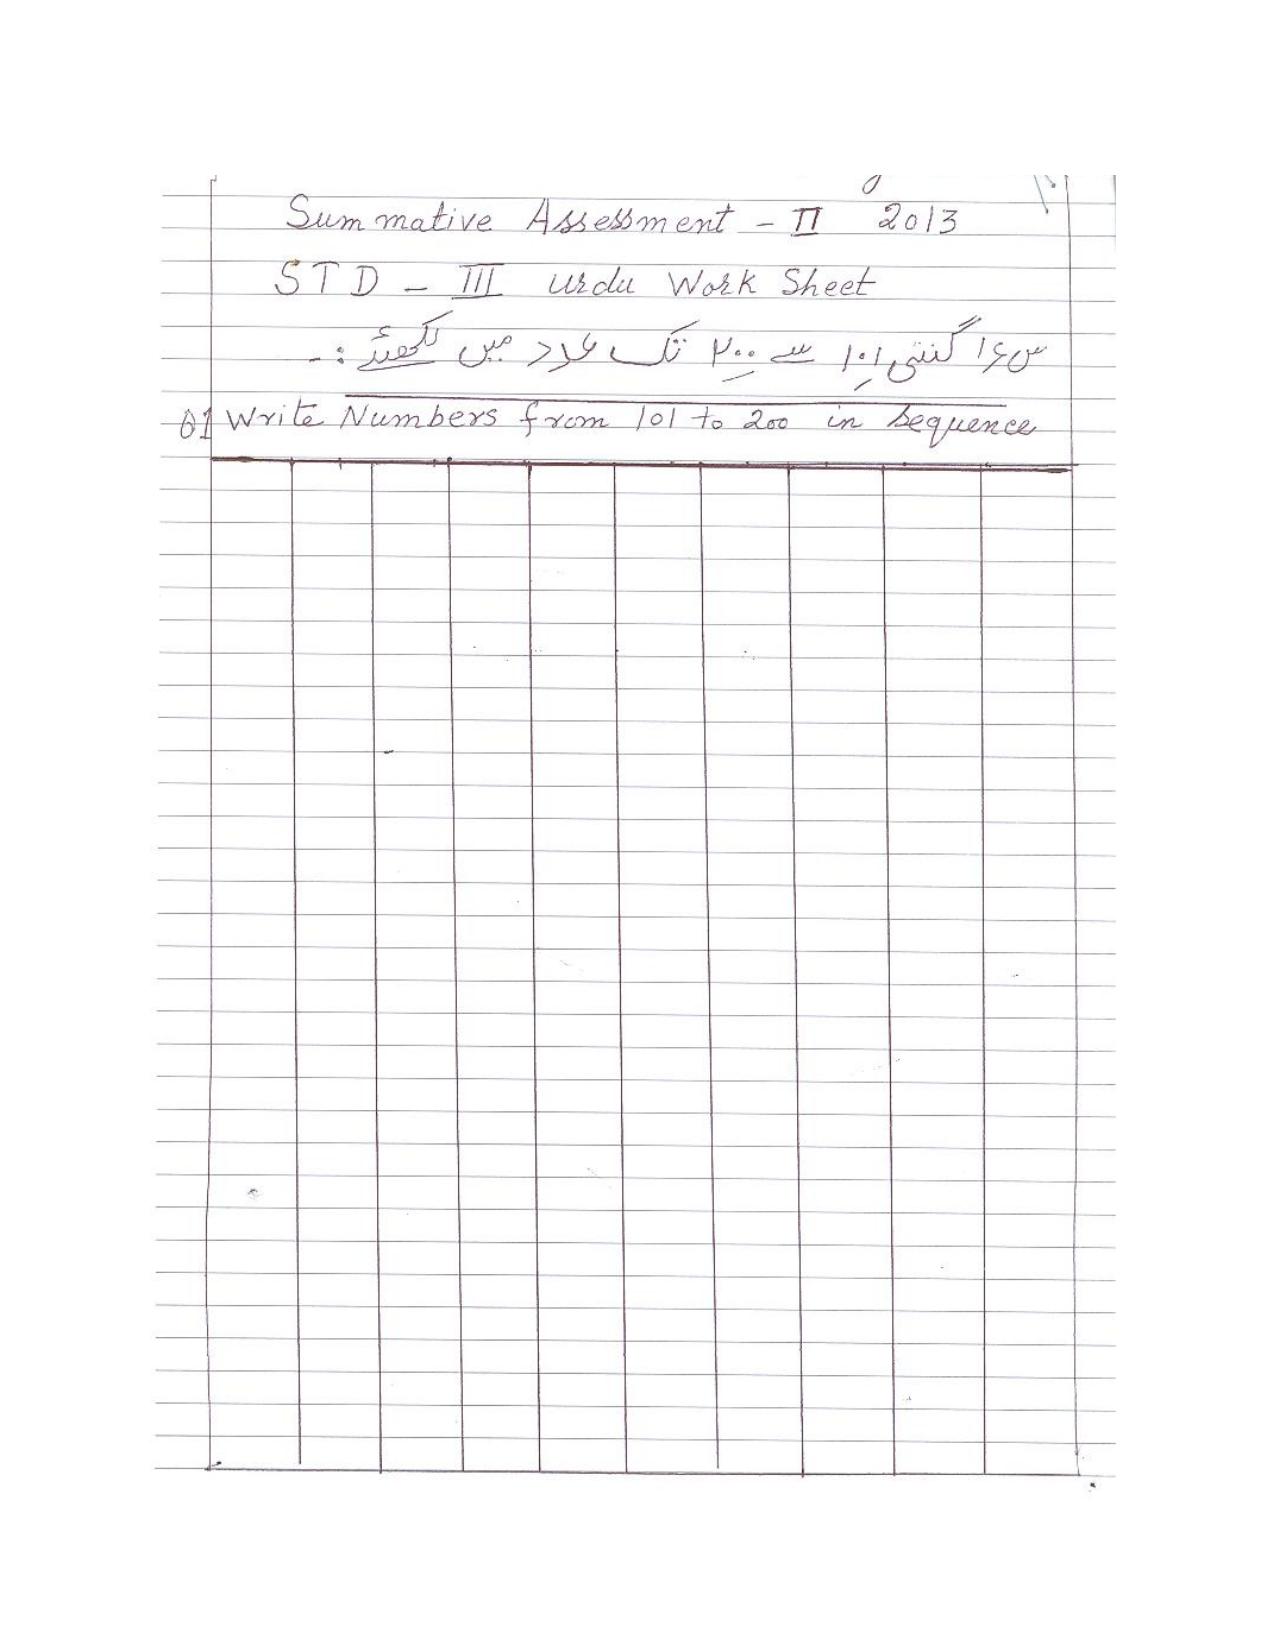 Summative Assessment - II 2013
STD - III Urdu Work Sheet
س۱ گنتی ۱۰۱ سے ۲۰۰ تک عدد میں لکھئے :-
Q1 Write Numbers from 101 to 200 in Sequence